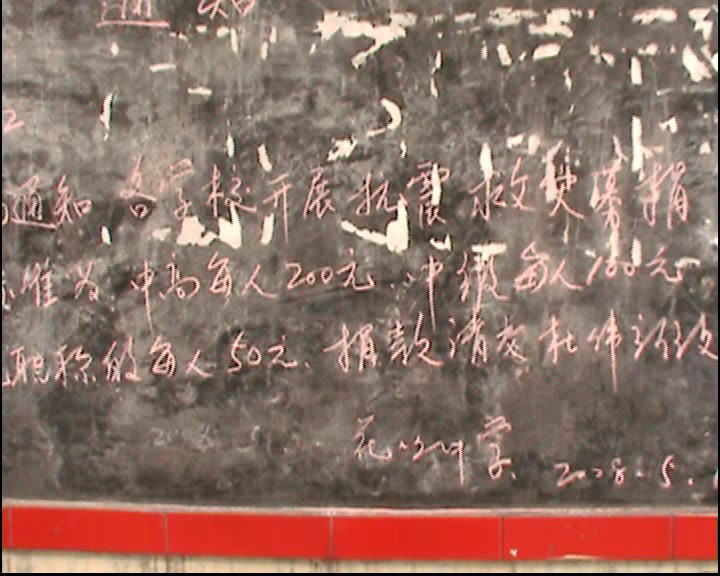 通知
通知 各学校开展抗震救灾募捐
标准为 中高每人200元、中级每人100元
职称的每人50元、捐款请交杜伟
学 2008.5.